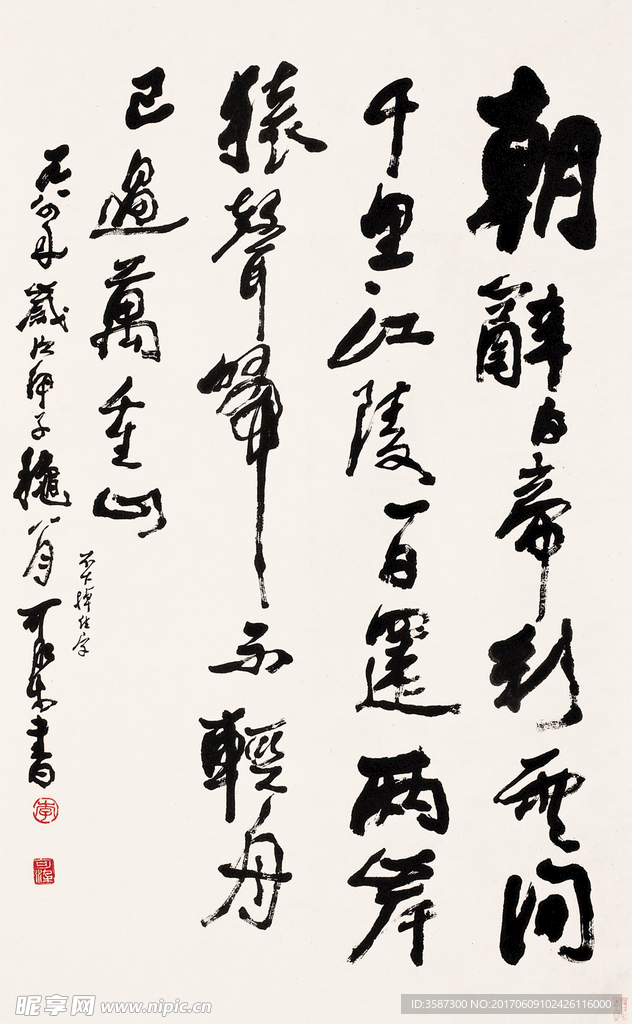 朝辭白帝彩雲間
千里江陵一日還两岸
猿聲啼不輕舟
已過萬重山
不下掉住字
一九八四年歲次甲子穐八月可染書
李
可染
昵享网 www.nipic.cn
ID:3587300 NO:20170609102426116000